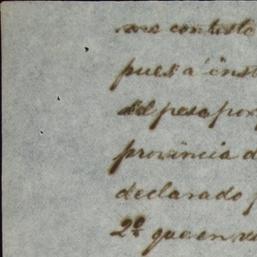 nos contesto
pues a inst
del pesa por
provincia d
declarado p
2º que en v